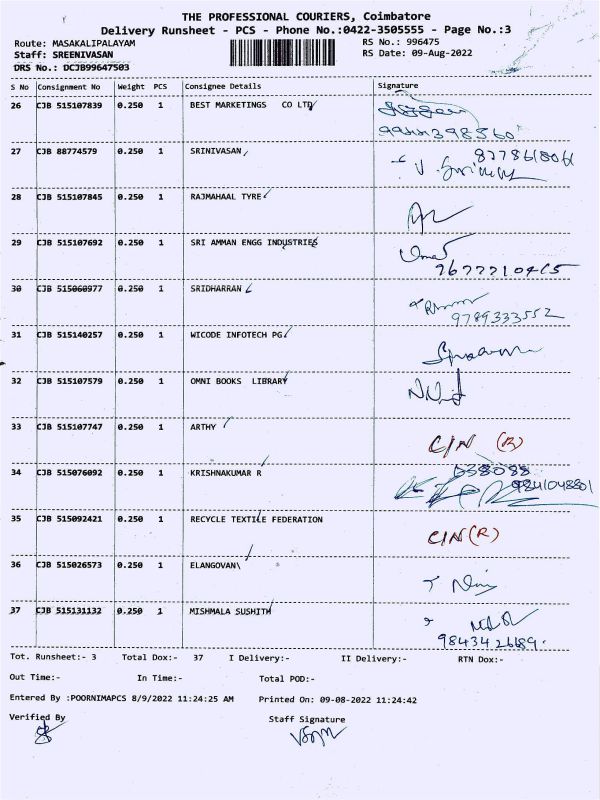 THE PROFESSIONAL COURIERS, Coimbatore
Delivery Runsheet - PCS - Phone No.:0422-3505555 - Page No.:3
Route: MASAKALIPALAYAM RS No.: 996475
Staff: SREENIVASAN RS Date: 09-Aug-2022
DRS No.: DCJB99647503
S No Consignment No Weight PCS Consignee Details Signature
26 CJB 515107839 0.250 1 BEST MARKETINGS CO LTD
27 CJB 88774579 0.250 1 SRINIVASAN
28 CJB 515107845 0.250 1 RAJMAHAAL TYRE
29 CJB 515107692 0.250 1 SRI AMMAN ENGG INDUSTRIES
30 CJB 515060977 0.250 1 SRIDHARRAN
9789333552
31 CJB 515140257 0.250 1 WICODE INFOTECH PG
32 CJB 515107579 0.250 1 OMNI BOOKS LIBRARY
33 CJB 515107747 0.250 1 ARTHY
C/N (R)
34 CJB 515076092 0.250 1 KRISHNAKUMAR R
9841048801
35 CJB 515092421 0.250 1 RECYCLE TEXTILE FEDERATION
C/N (R)
36 CJB 515026573 0.250 1 ELANGOVAN\
37 CJB 515131132 0.250 1 MISHMALA SUSHITH
9843426689.
Tot. Runsheet:- 3 Total Dox:- 37 I Delivery:- II Delivery:- RTN Dox:-
Out Time:- In Time:- Total POD:-
Entered By :POORNIMAPCS 8/9/2022 11:24:25 AM Printed On: 09-08-2022 11:24:42
Verified By Staff Signature